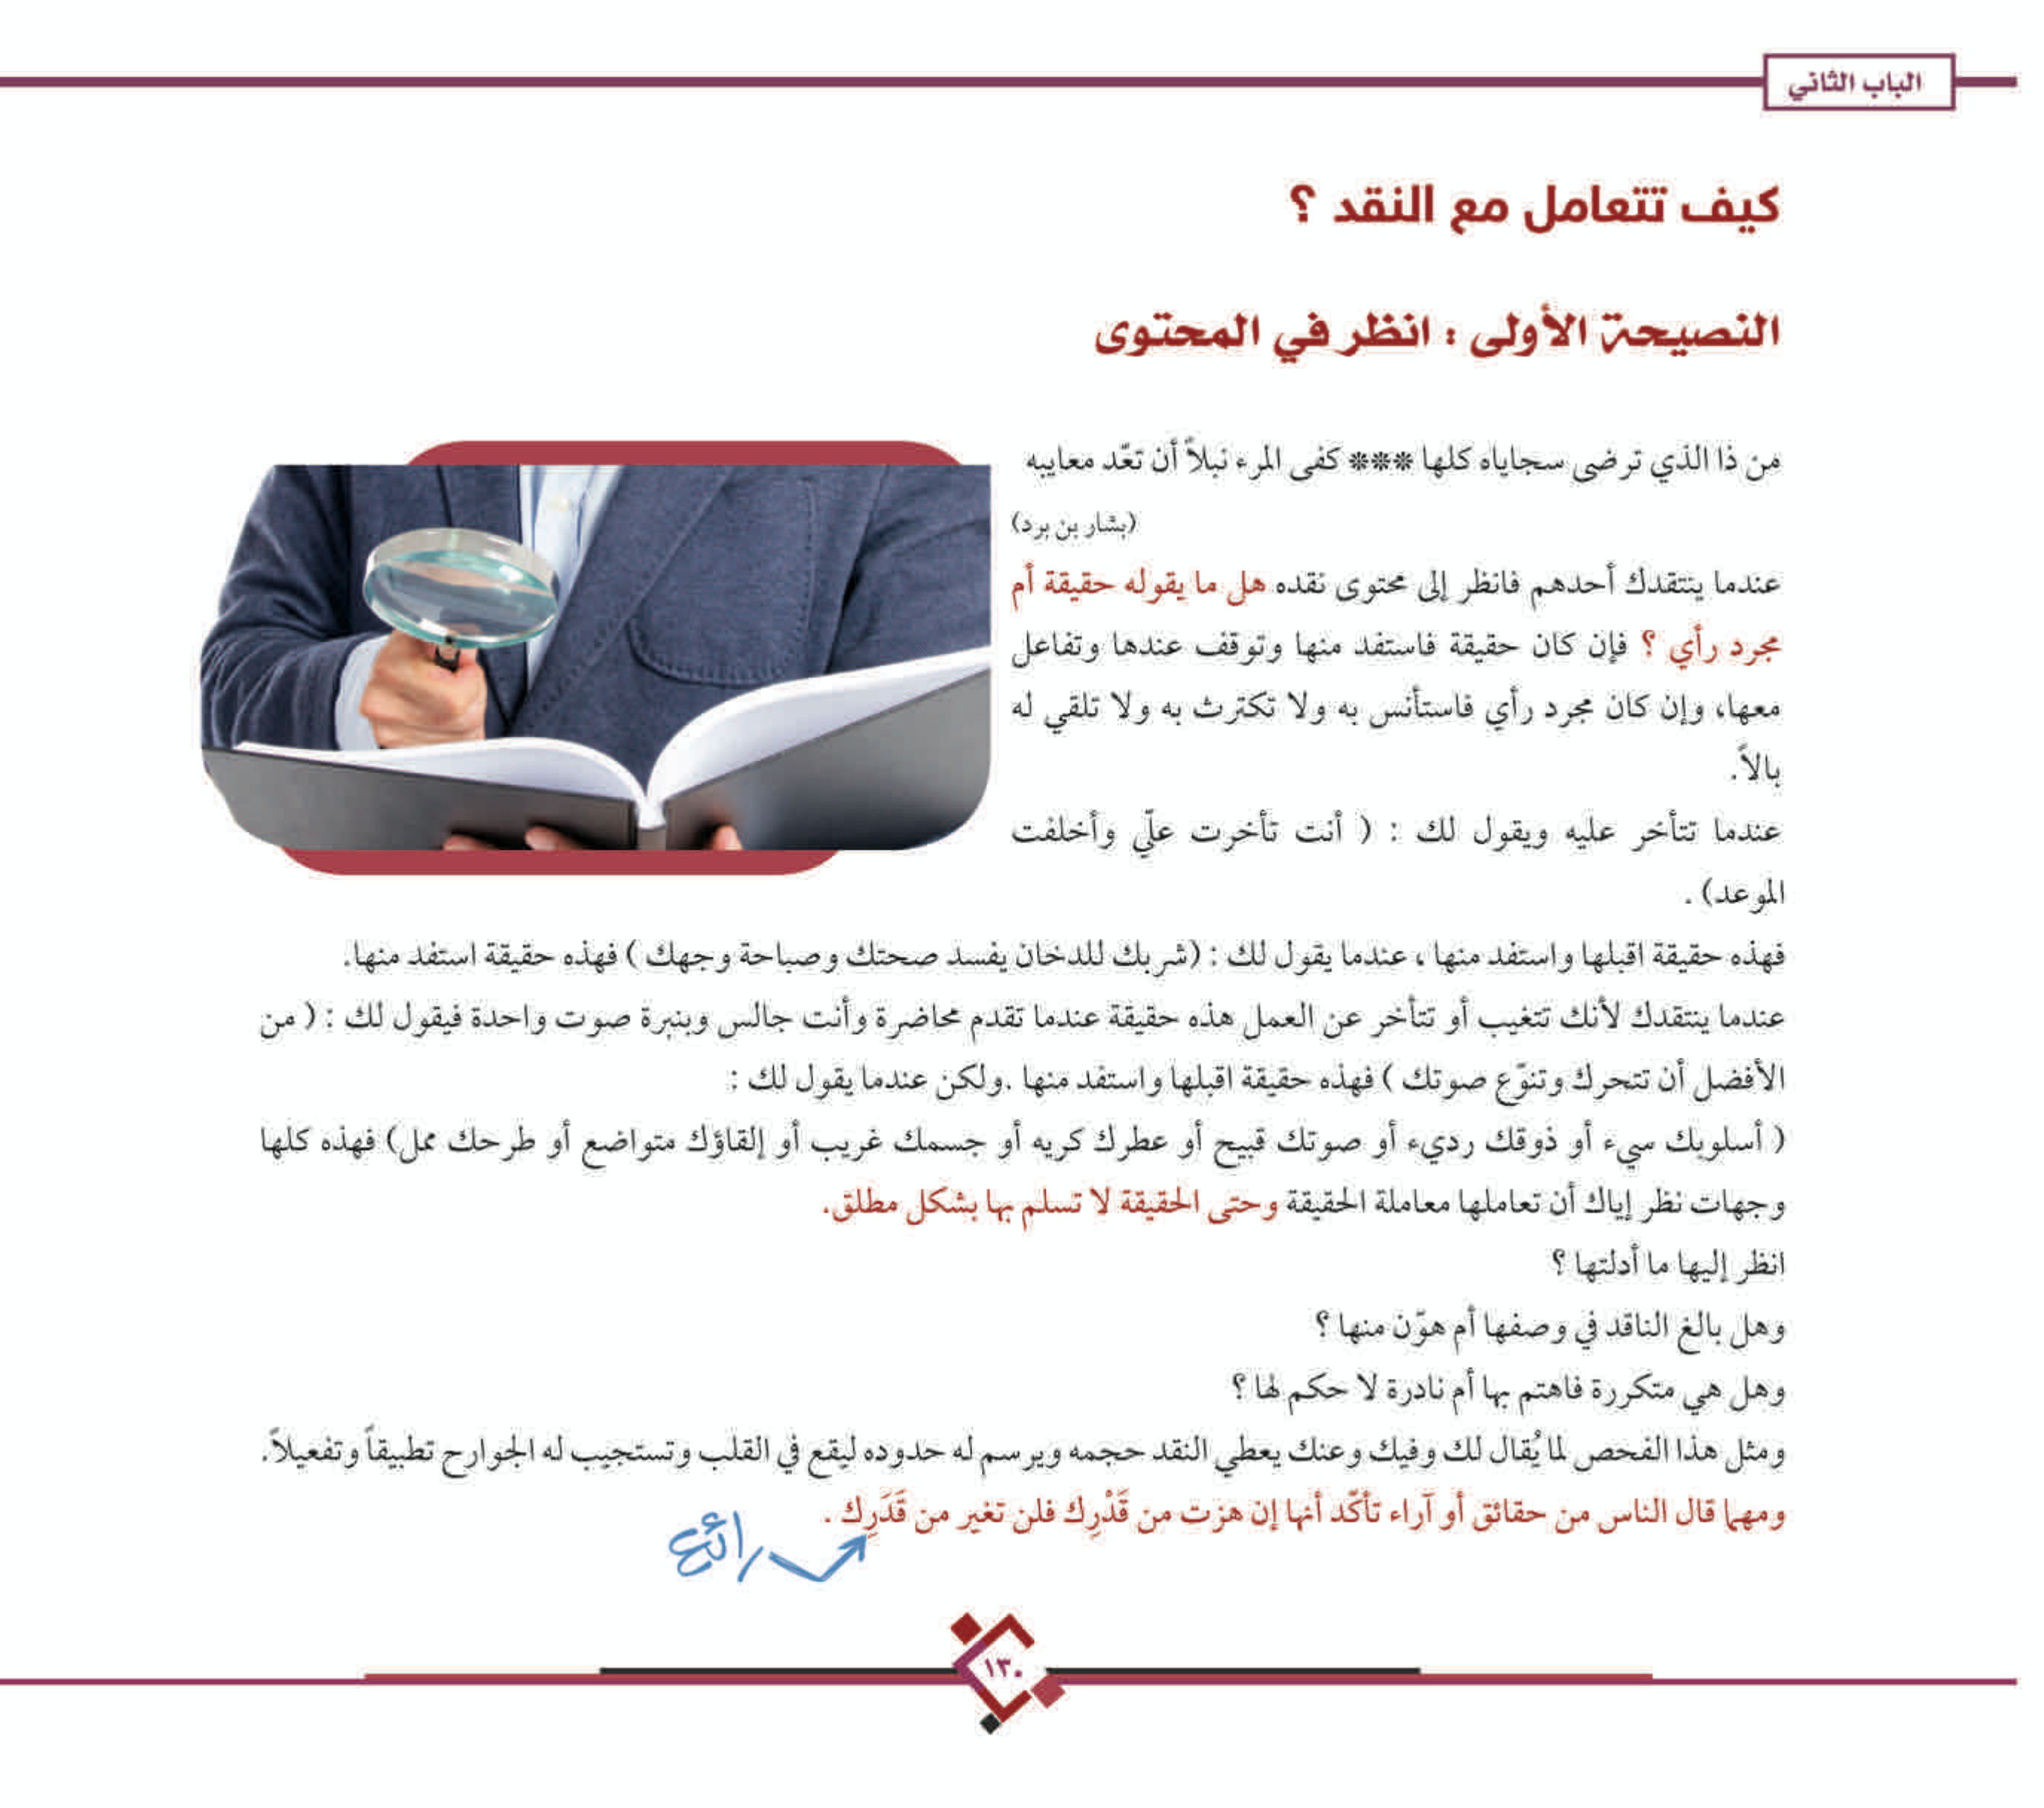 الباب الثاني
كيف تتعامل مع النقد ؟
النصيحة الأولى : انظر في المحتوى
من ذا الذي ترضى سجاياه كلها *** كفى المرء نبلاً أن تعّد معايبه
(بشار بن برد)
عندما ينتقدك أحدهم فانظر إلى محتوى نقده هل ما يقوله حقيقة أم
مجرد رأي ؟ فإن كان حقيقة فاستفد منها وتوقف عندها وتفاعل
معها، وإن كان مجرد رأي فاستأنس به ولا تكترث به ولا تلقي له
بالاً.
عندما تتأخر عليه ويقول لك : ( أنت تأخرت علّي وأخلفت
الموعد) .
فهذه حقيقة اقبلها واستفد منها ، عندما يقول لك : (شربك للدخان يفسد صحتك وصباحة وجهك ) فهذه حقيقة استفد منها.
عندما ينتقدك لأنك تتغيب أو تتأخر عن العمل هذه حقيقة عندما تقدم محاضرة وأنت جالس وبنبرة صوت واحدة فيقول لك : ( من
الأفضل أن تتحرك وتنوّع صوتك ) فهذه حقيقة اقبلها واستفد منها .ولكن عندما يقول لك :
( أسلوبك سيء أو ذوقك رديء أو صوتك قبيح أو عطرك كريه أو جسمك غريب أو إلقاؤك متواضع أو طرحك ممل) فهذه كلها
وجهات نظر إياك أن تعاملها معاملة الحقيقة وحتى الحقيقة لا تسلم بها بشكل مطلق.
انظر إليها ما أدلتها ؟
وهل بالغ الناقد في وصفها أم هوّن منها ؟
وهل هي متكررة فاهتم بها أم نادرة لا حكم لها ؟
ومثل هذا الفحص لما يُقال لك وفيك وعنك يعطي النقد حجمه ويرسم له حدوده ليقع في القلب وتستجيب له الجوارح تطبيقاً وتفعيلاً.
ومهما قال الناس من حقائق أو آراء تأكّد أنها إن هزت من قَدْرِك فلن تغير من قَدَرِك .
رائع
١٣٠